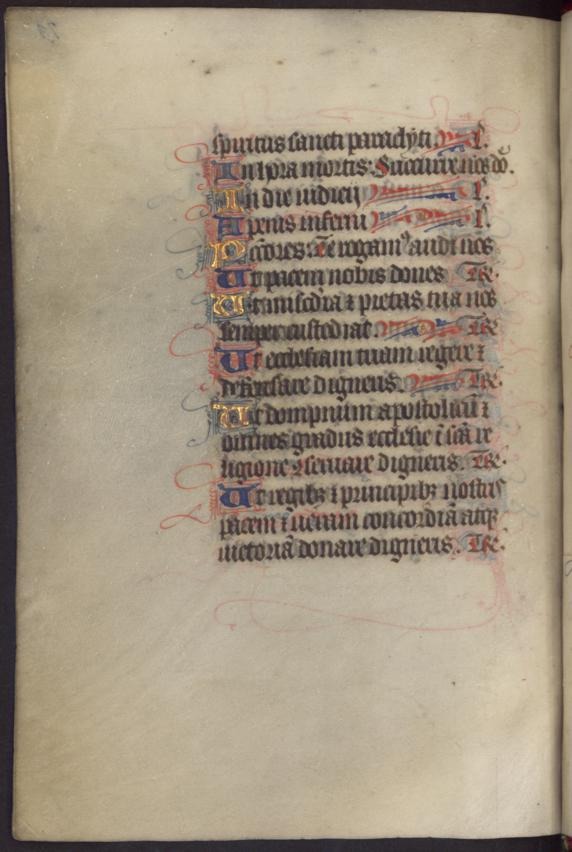 spiritus sancti paraclyti. l'.
In hora mortis. Succurre nos dō.
In die iudicij l'.
A penis inferni l'.
Pcc̄ores. Te rogamꝰ audi nos
Ut pacem nobis dones Te.
Ut mis̄cdia ⁊ pietas tua nos
semper custodiat. Te
Ut ecclesiam tuam regere ⁊
defensare digneris. Te.
Ut dompnum apostolicū ⁊
omnes gradus ecclesie ī sc̄a re
ligione 9seruare digneris. Te.
Ut regibꝫ ⁊ principibꝫ nostris
pacem ⁊ ueram concordiā atqꝫ
uictoriā donare digneris. Te.